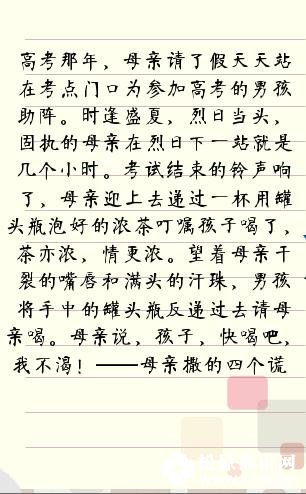 高考那年，母亲请了假天天站
在考点门口为参加高考的男孩
助阵。时逢盛夏，烈日当头，
固执的母亲在烈日下一站就是
几个小时。考试结束的铃声响
了，母亲迎上去递过一杯用罐
头瓶泡好的浓茶叮嘱孩子喝了，
茶亦浓，情更浓。望着母亲干
裂的嘴唇和满头的汗珠，男孩
将手中的罐头瓶反递过去请母
亲喝。母亲说，孩子，快喝吧，
我不渴！——母亲撒的四个谎